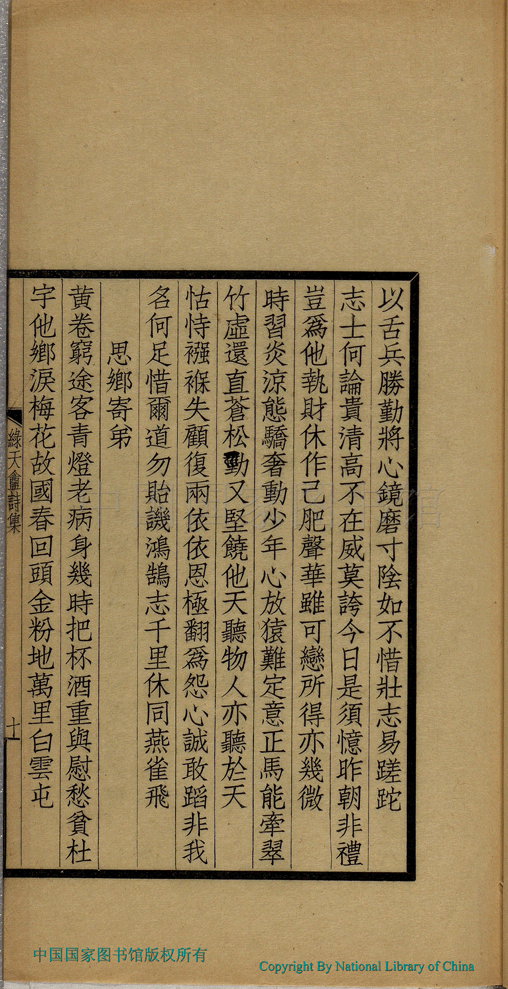 以舌兵勝勤將心鏡磨寸陰如不惜壯志易蹉跎
志士何論貴清高不在威莫誇今日是須憶昨朝非禮
豈爲他執財休作己肥聲華雖可戀所得亦幾微
時習炎涼態驕奢動少年心放猿難定意正馬能牽翠
竹虛還直蒼松勁又堅饒他天聽物人亦聽於天
怙恃襁褓失顧復兩依依恩極翻爲怨心誠敢蹈非我
名何足惜爾道勿貽譏鴻鵠志千里休同燕雀飛
思鄉寄弟
黃卷窮途客青燈老病身幾時把杯酒重與慰愁貧杜
宇他鄉淚梅花故國春回頭金粉地萬里白雲屯
綠天龕詩集
十一
中国国家图书馆版权所有
Copyright By National Library of China